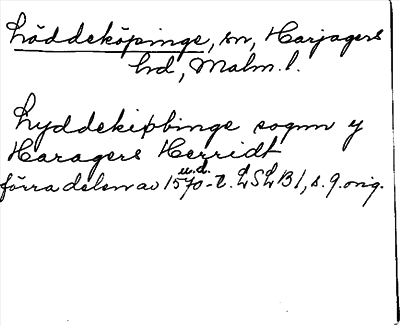 Löddeköpinge, sn, Harjagers
hd, Malm. l.
Lyddekiøbinge sognn y
Haragers Herridt
u.d.
förra delen av 1570-t. LSLB 1, s. 9. orig.